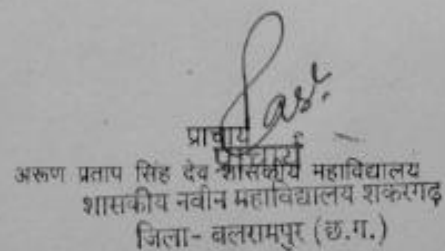 प्राचार्य
प्राचार्य
अरूण प्रताप सिंह देव शासकीय महाविद्यालय
शासकीय नवीन महाविद्यालय शंकरगढ़
जिला- बलरामपुर (छ.ग.)